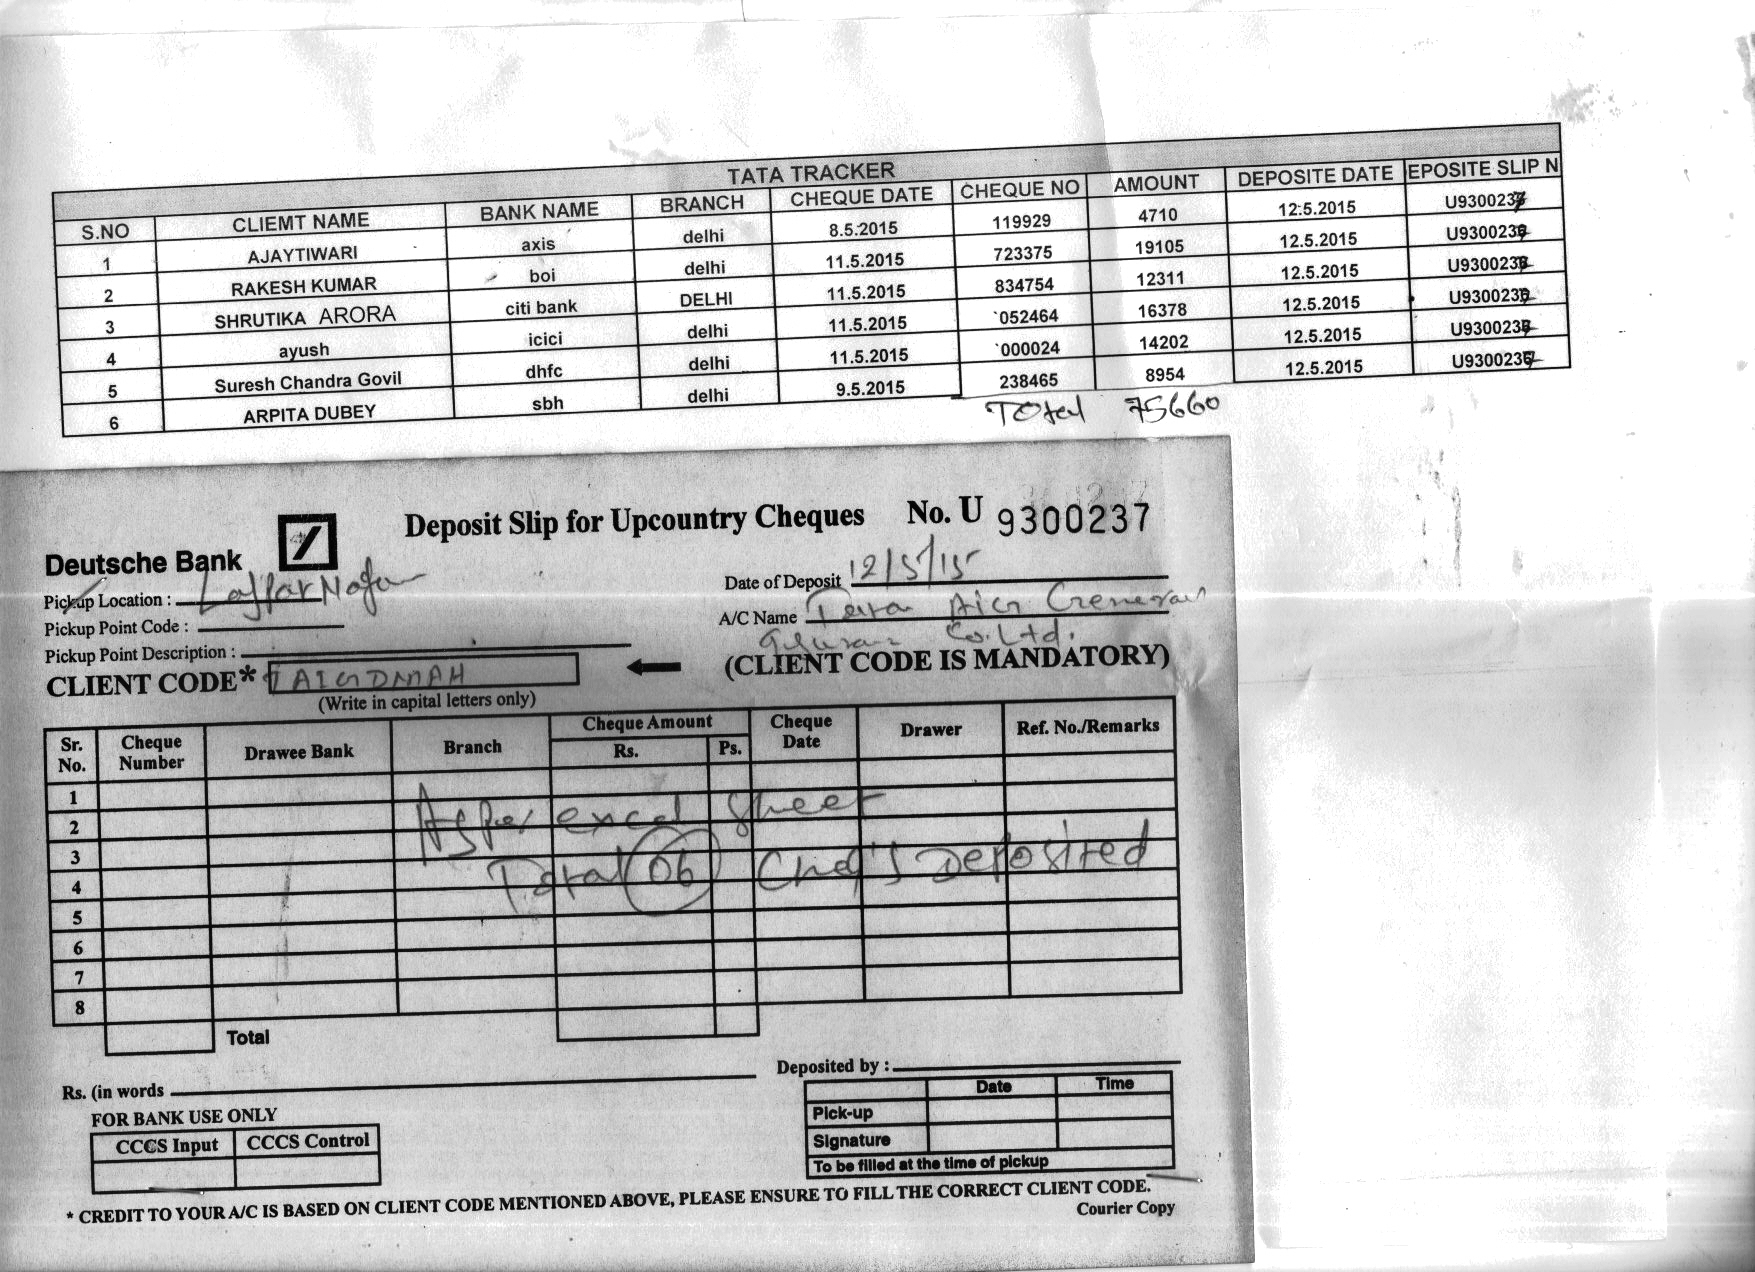 TATA TRACKER
S.NO CLIEMT NAME BANK NAME BRANCH CHEQUE DATE CHEQUE NO AMOUNT DEPOSITE DATE EPOSITE SLIP N
1 AJAYTIWARI axis delhi 8.5.2015 119929 4710 12.5.2015 U9300237
2 RAKESH KUMAR boi delhi 11.5.2015 723375 19105 12.5.2015 U9300237
3 SHRUTIKA ARORA citi bank DELHI 11.5.2015 834754 12311 12.5.2015 U9300237
4 ayush icici delhi 11.5.2015 `052464 16378 12.5.2015 U9300237
5 Suresh Chandra Govil dhfc delhi 11.5.2015 `000024 14202 12.5.2015 U9300237
6 ARPITA DUBEY sbh delhi 9.5.2015 238465 8954 12.5.2015 U9300237
Total 75660
Deutsche Bank
Deposit Slip for Upcountry Cheques No. U 9300237
Pickup Location :
Date of Deposit 12/5/15
Pickup Point Code :
A/C Name Tata AIG General
Co. Ltd.
Pickup Point Description :
CLIENT CODE* TAIGDMAH
(CLIENT CODE IS MANDATORY)
(Write in capital letters only)
Sr. No. Cheque Number Drawee Bank Branch Cheque Amount Rs. Ps. Cheque Date Drawer Ref. No./Remarks
1
2
As per excel sheet
3
4
Total 06 Chq's Deposited
5
6
7
8
Total
Deposited by :
Rs. (in words
Date Time
FOR BANK USE ONLY
Pick-up
CCCS Input CCCS Control
Signature
To be filled at the time of pickup
* CREDIT TO YOUR A/C IS BASED ON CLIENT CODE MENTIONED ABOVE, PLEASE ENSURE TO FILL THE CORRECT CLIENT CODE.
Courier Copy